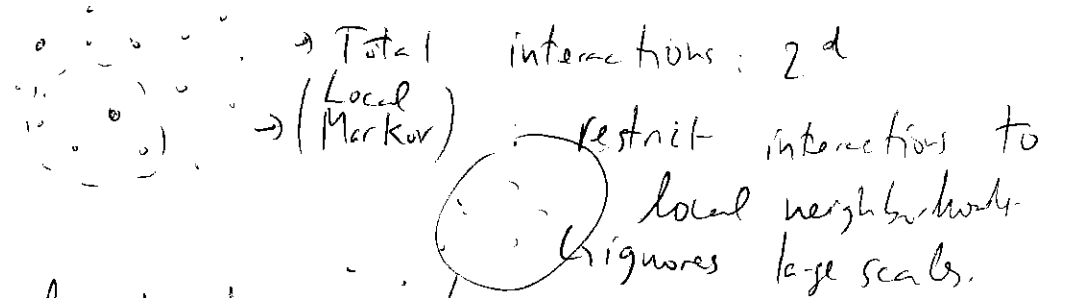 → Total interactions : 2^d
→ (Local Markov) : restrict interactions to
local neighborhoods
↳ ignores large scales.